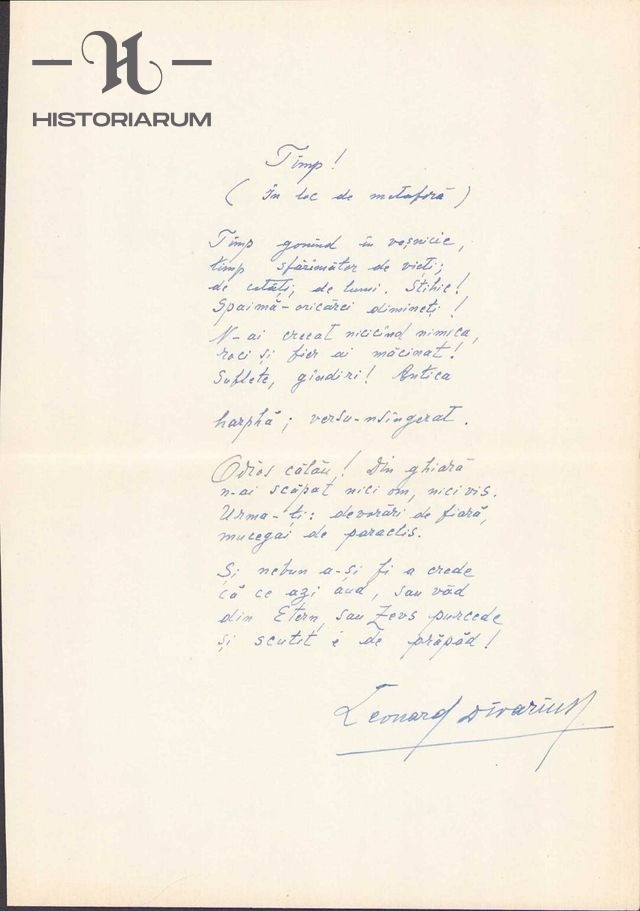 H
HISTORIARUM
Timp!
(În loc de metaforă)
Timp gonind în veșnicie,
timp sfărîmător de vieți;
de cetăți, de lumi. Stihie!
Spaimă-oricărei dimineți!
N-ai crezut nicicînd nimica,
roci și fier ai măcinat!
Suflete, gîndiri! Antica
harphă; versu-nsîngerat.
Odios călău! Din ghiară
n-ai scăpat nici om, nici vis.
Urma-ți: devorări de fiară,
mucegai de paraclis.
Și nebun a-și fi a crede
că ce azi aud, sau văd
din Etern, sau Zevs purcede
și scutit e de prăpăd!
Leonard Divarius